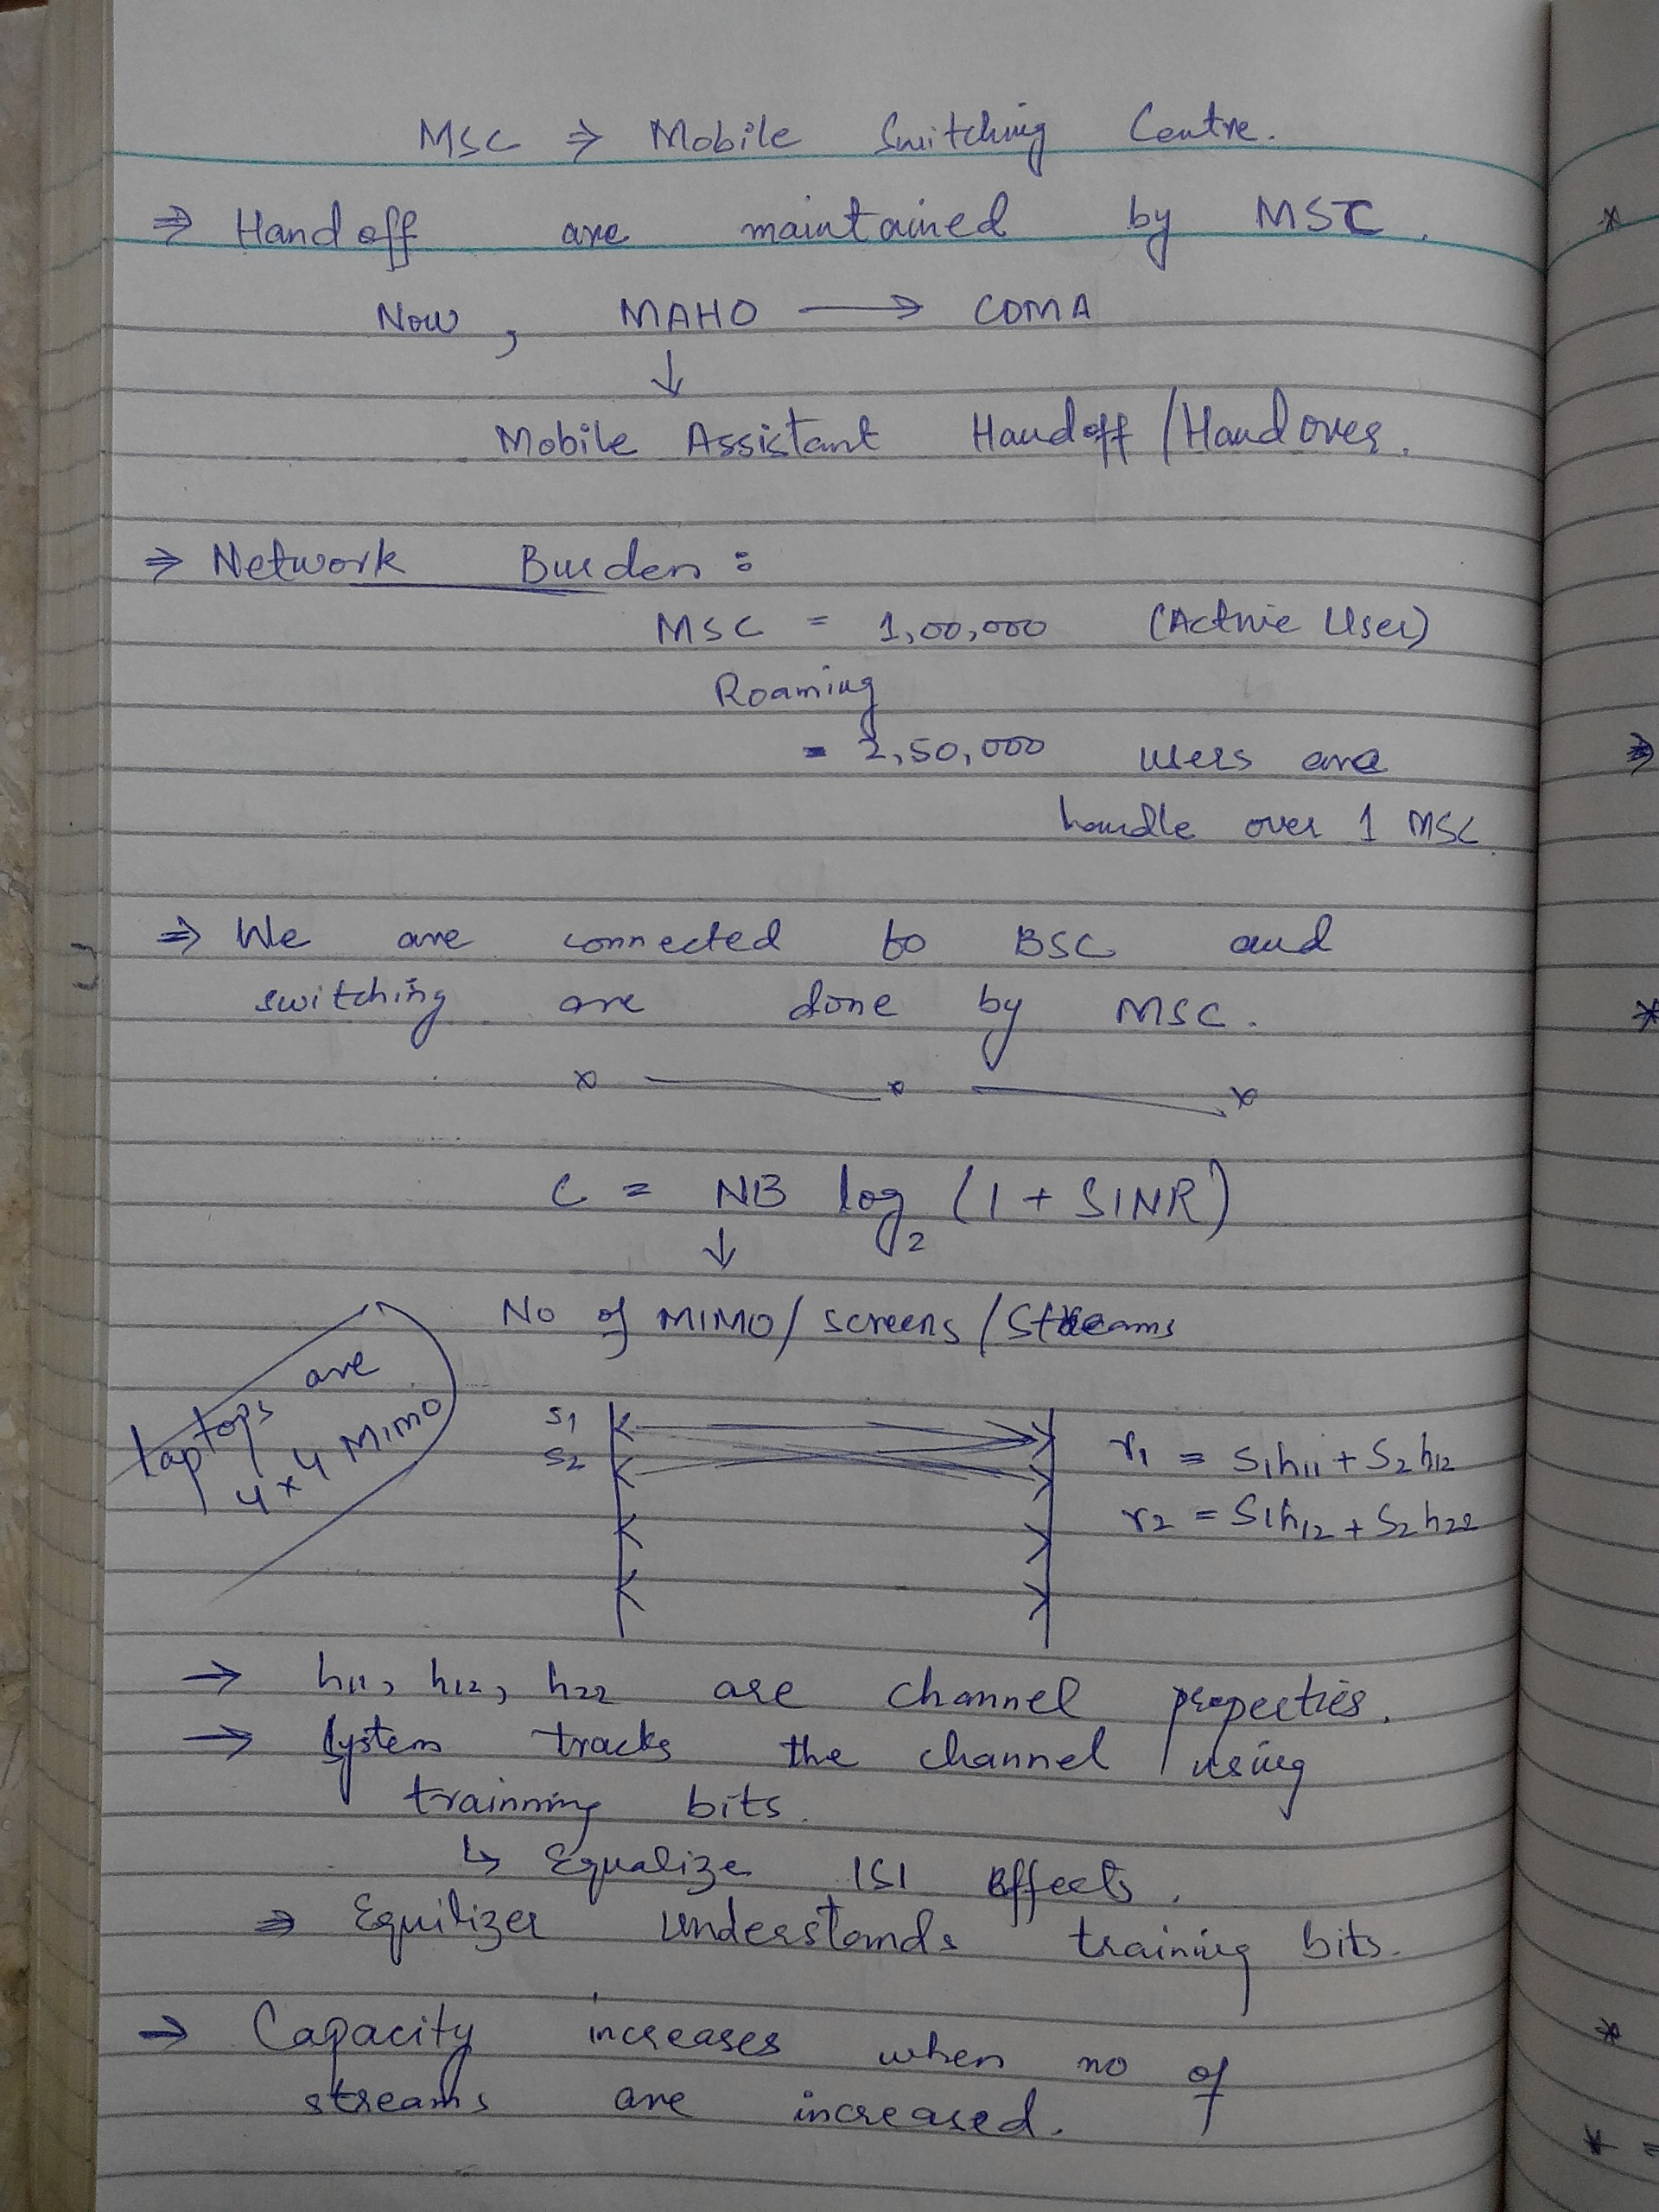 MSC ⇒ Mobile Switching Centre.
⇒ Handoff are maintained by MSC.
Now, MAHO → CDMA
↓
Mobile Assistant Handoff/Handover.
⇒ Network Burden :
MSC = 1,00,000 (Active User)
Roaming
= 2,50,000 users are
handle over 1 MSC.
⇒ We are connected to BSC and
switching are done by MSC.
x — x — x
C = NB log₂ (1 + SINR)
↓
No of MIMO/screens/Streams
laptops are
4x4 MIMO
S1
S2
r1 = S1h11 + S2h12
r2 = S1h12 + S2h22
→ h11, h12, h22 are channel properties.
→ System tracks the channel using
trainning bits.
↳ Equalize ISI Effects.
⇒ Equilizer understands training bits.
→ Capacity increases when no of
streams are increased.